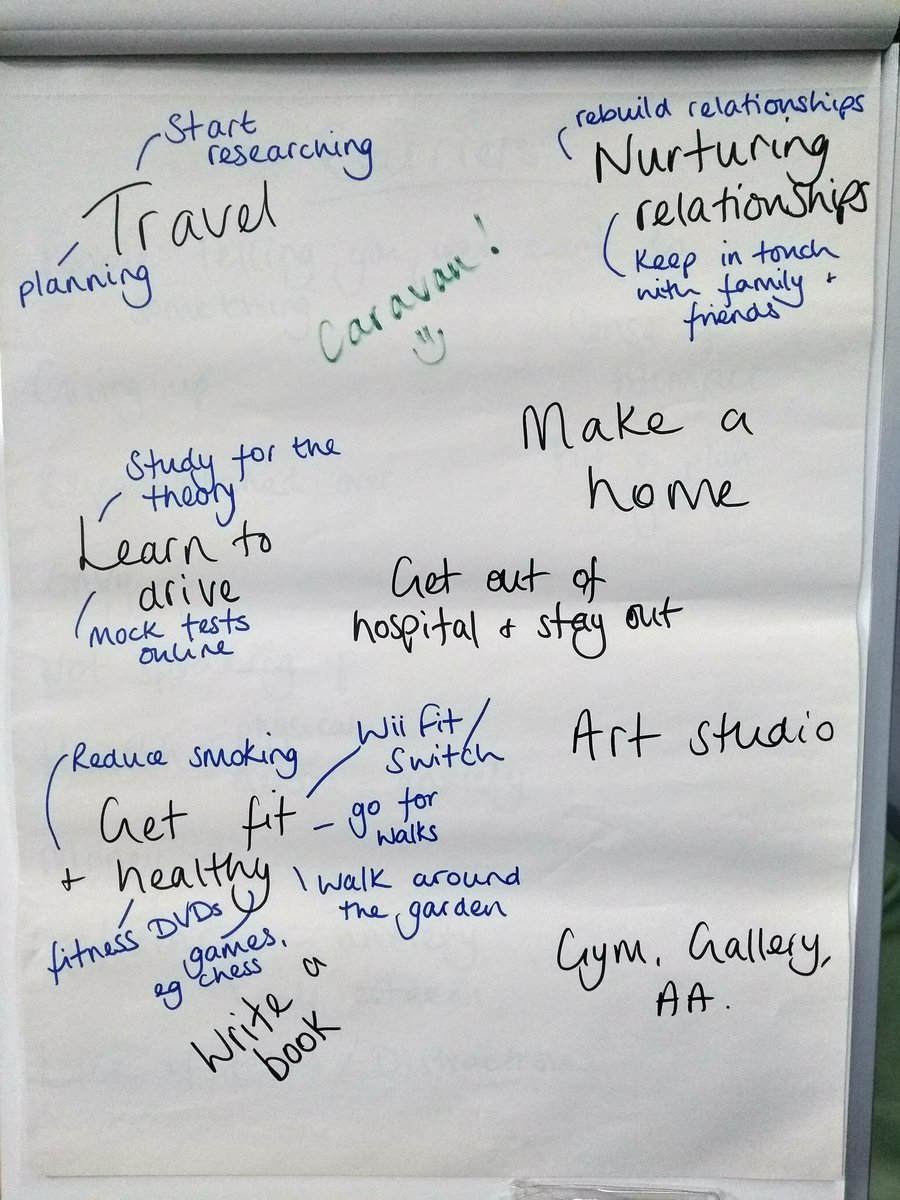 Start
researching
Travel
planning
rebuild relationships
Nurturing
relationships
Keep in touch
with family +
friends
Caravan!
Make a
home
Study for the
theory
Learn to
drive
Mock tests
online
Get out of
hospital + stay out
Art studio
Reduce smoking
Wii Fit /
Switch
Get fit
+ healthy
go for
walks
walk around
the garden
fitness DVDs
games,
eg chess
Write a
book
Gym, Gallery,
AA.